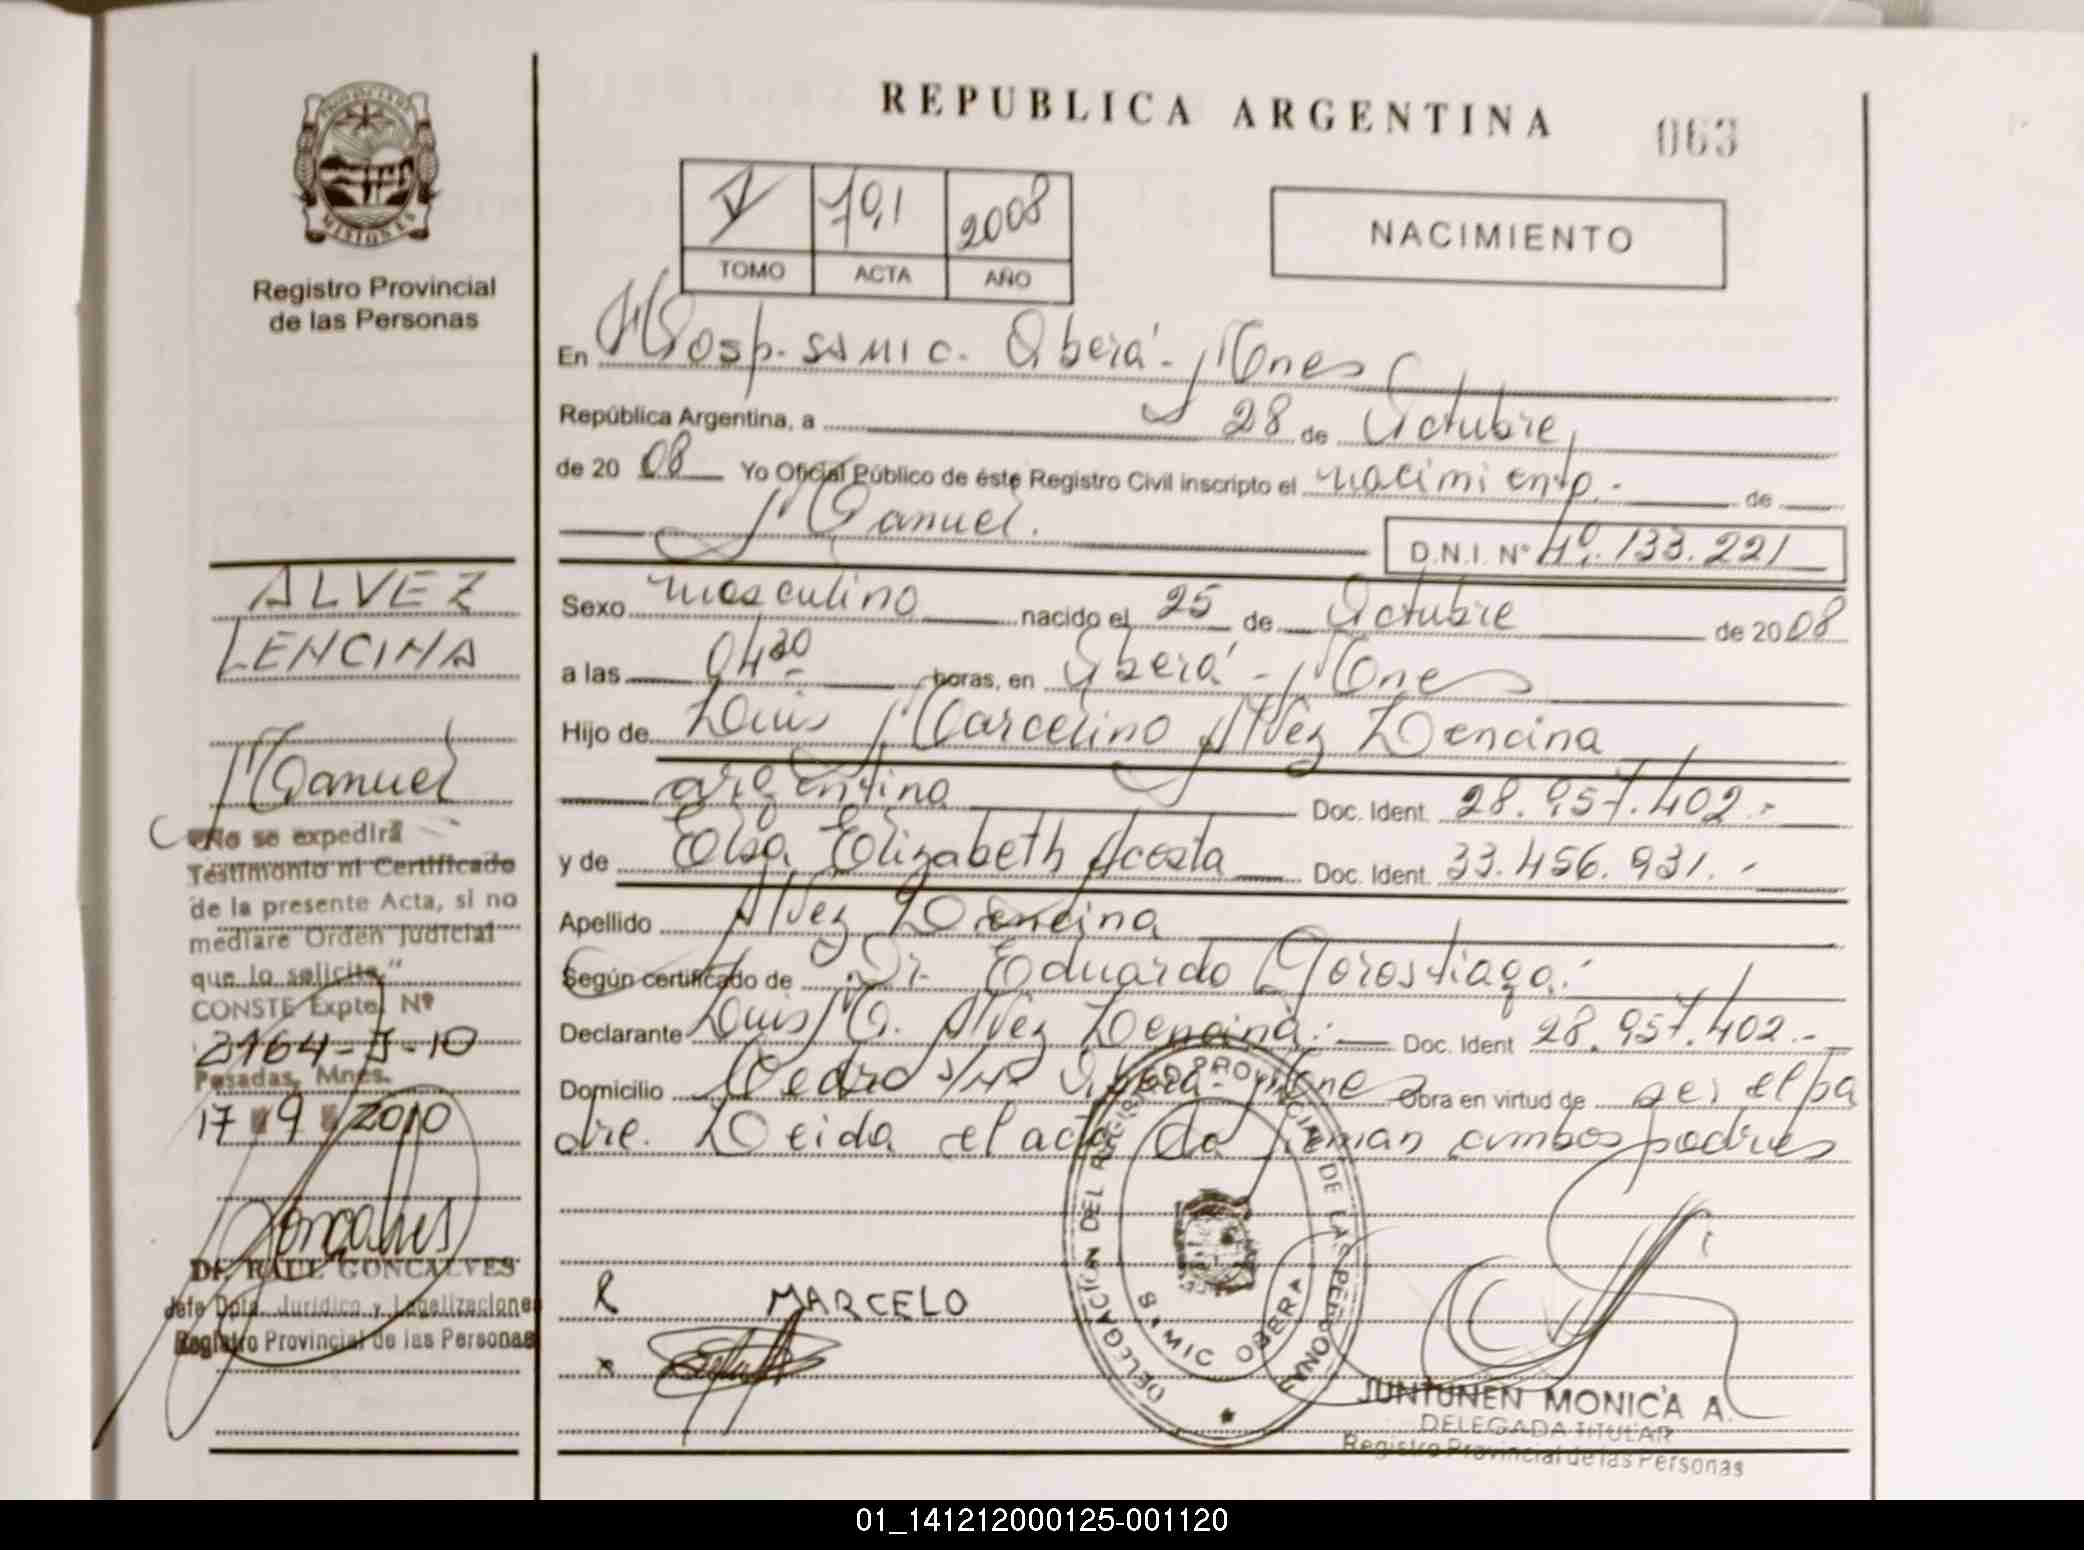 REPUBLICA ARGENTINA
063
PROVINCIA DE MISIONES
Registro Provincial
de las Personas
V 701 2008
TOMO ACTA AÑO
NACIMIENTO
En Hosp. SAMIC. Oberá - Mnes
República Argentina, a 28 de Octubre
de 20 08 Yo Oficial Público de éste Registro Civil inscripto el nacimiento.- de
Manuel. D.N.I. Nº 49.133.221
Sexo masculino nacido el 25 de Octubre de 20 08
a las 04 30 horas, en Oberá - Mnes
Hijo de Luis Marcelino Alvez Lencina
argentino Doc. Ident. 28.957.402.-
y de Elsa Elizabeth Acosta Doc. Ident. 33.456.931.-
Apellido Alvez Lencina
Según certificado de Dr. Eduardo Gorostiaga.
Declarante Luis M. Alvez Lencina. Doc. Ident 28.957.402.-
Domicilio Cedro s/Nº Oberá - Mnes Obra en virtud de ser el pa
dre. Leida el acta la firman ambos padres
R MARCELO
DELEGACIÓN DEL REGISTRO PROVINCIAL DE LAS PERSONAS
SAMIC OBERA
JUNTUNEN MONICA A.
DELEGADA TITULAR
Registro Provincial de las Personas
ALVEZ
LENCINA
Manuel
"No se expedirá
Testimonio ni Certificado
de la presente Acta, si no
mediare Orden Judicial
que lo solicite"
CONSTE Expte. Nº
3164-J-10
Posadas, Mnes.
17 9 2010
Goncalves
Dr. RAUL GONCALVES
Jefe Dpto. Jurídico y Legalizaciones
Registro Provincial de las Personas
01_141212000125-001120